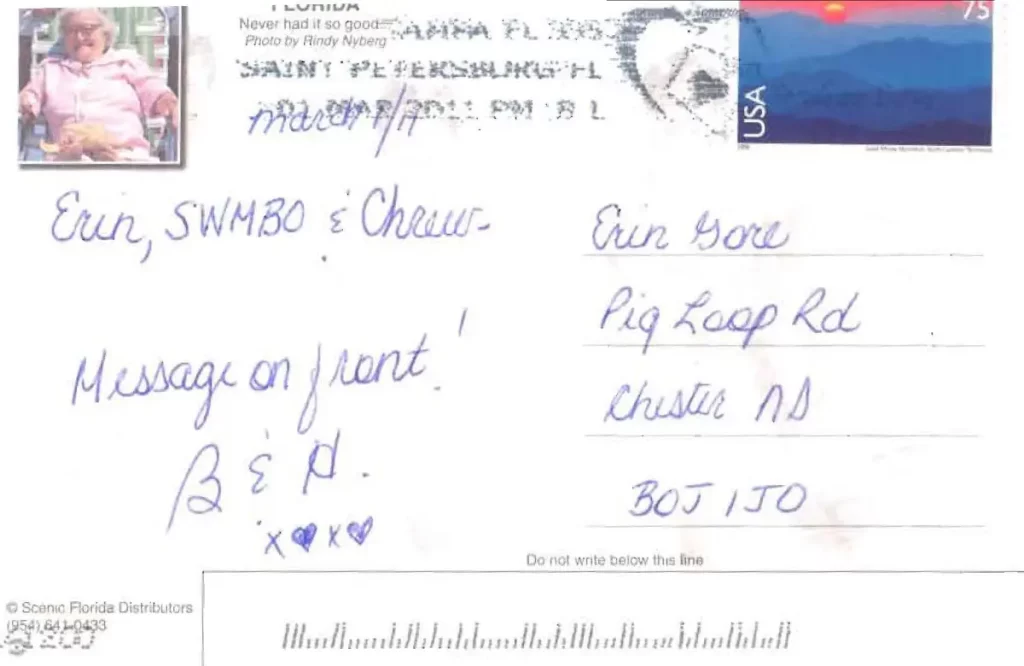 FLORIDA
Never had it so good
Photo by Rindy Nyberg
TAMPA FL
SAINT PETERSBURG FL
01 MAR 2011 PM 8 L
March 1/11
75
USA
Erin, SWMBO & Chrew-
Message on front!
B & H.
x ♥ x ♥
Erin Gore
Pig Loop Rd
Chester NS
BOJ 1JO
Do not write below this line
© Scenic Florida Distributors
(954) 641-0433